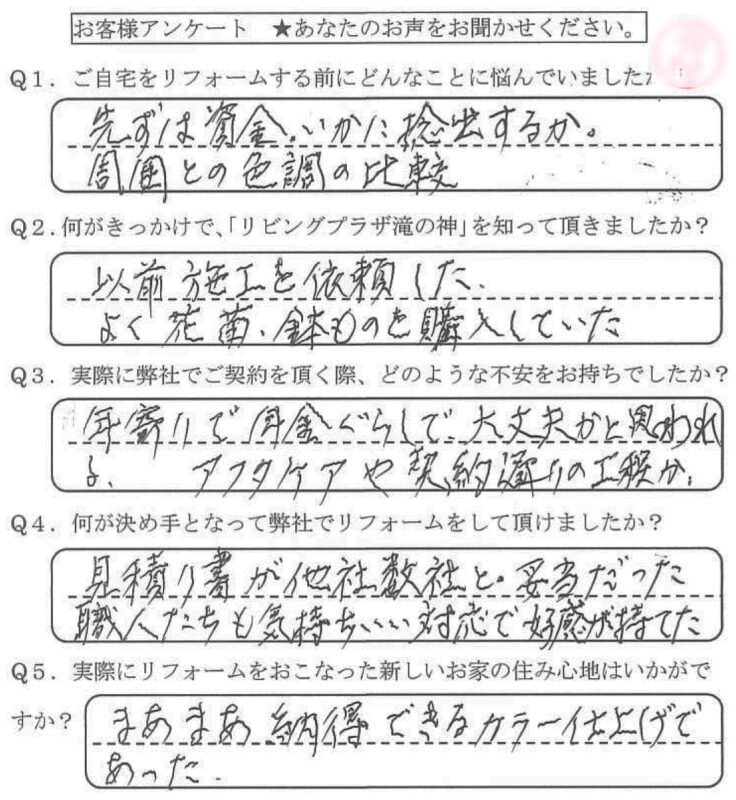 お客様アンケート ★あなたのお声をお聞かせください。
Q1. ご自宅をリフォームする前にどんなことに悩んでいましたか
先ずは資金。いかに捻出するか。
周囲との色調の比較
Q2.何がきっかけで、「リビングプラザ滝の神」を知って頂きましたか?
以前施工を依頼した。
よく花苗、鉢ものを購入していた
Q3. 実際に弊社でご契約を頂く際、どのような不安をお持ちでしたか?
年寄りで年金ぐらしで、大丈夫かと思われ
る、 アフタケアや契約通りの工程か。
Q4. 何が決め手となって弊社でリフォームをして頂けましたか?
見積り書が他社数社と。妥当だった
職人たちも気持ちいい対応で好感が持てた
Q5. 実際にリフォームをおこなった新しいお家の住み心地はいかがで
すか?
まあまあ納得できるカラー仕上げで
あった.